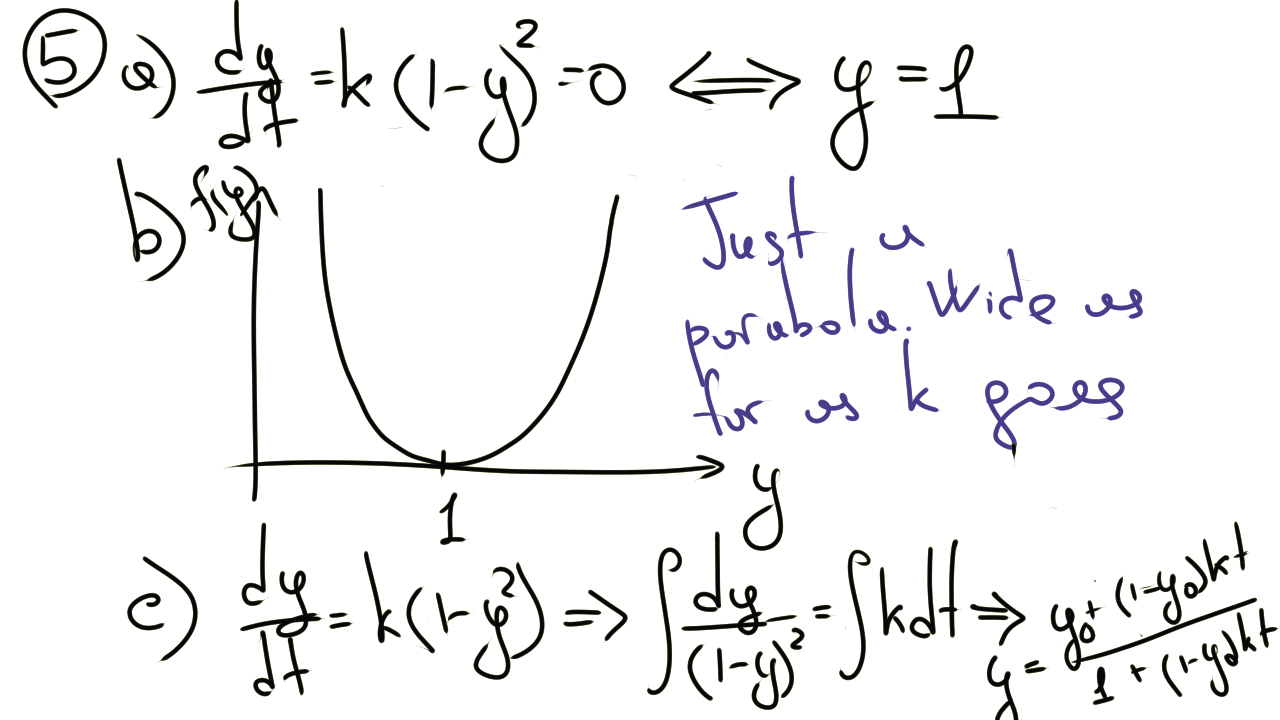 ⑤ a) dy/dt = k(1-y)² = 0 ⟺ y = 1
b) f(y)
Just a
parabola. Wide as
far as k goes
y
1
c) dy/dt = k(1-y²) ⇒ ∫ dy/(1-y)² = ∫ k dt ⇒ y = (y₀ + (1-y₀)kt)/(1 + (1-y₀)kt)